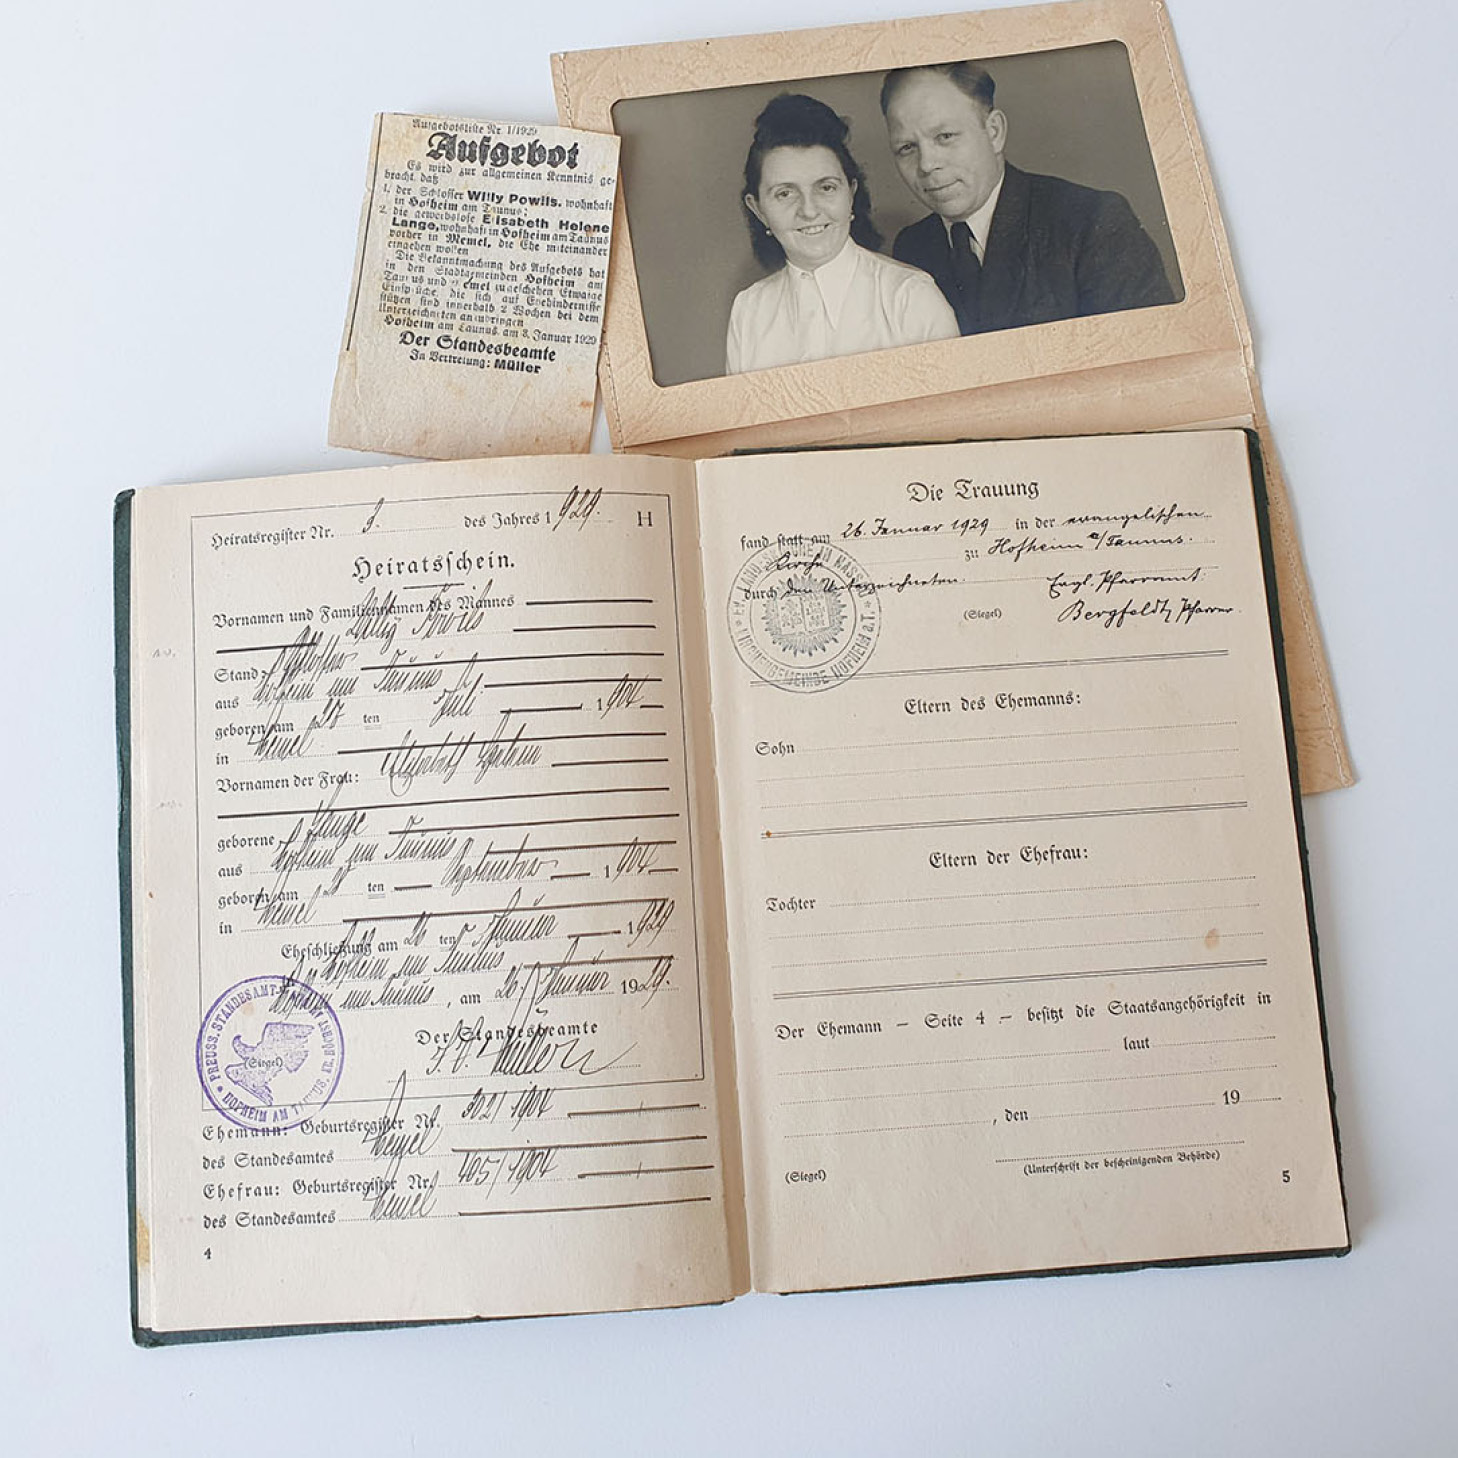 Aufgebotsliste Nr. 1/1929
Aufgebot
Es wird zur allgemeinen Kenntnis ge-
bracht, daß
1. der Schlosser Willy Powils, wohnhaft
in Hofheim am Taunus;
2. die gewerbslose Elisabeth Helene
Lange, wohnhaft in Hofheim am Taunus
vorher in Memel, die Ehe miteinander
eingehen wollen
Die Bekanntmachung des Aufgebots hat
in den Stadtgemeinden Hofheim am
Taunus und Memel zu geschehen Etwaige
Einsprüche, die sich auf Ehehindernisse
stützen sind innerhalb 2 Wochen bei dem
Unterzeichneten anzubringen
Hofheim am Taunus, am 8. Januar 1929
Der Standesbeamte
In Vertretung: Müller
Heiratsregister Nr. 3. des Jahres 1929. H
Heiratsschein.
Vornamen und Familiennamen des Mannes
Willy Powils
Stand: Schlosser
aus Hofheim am Taunus
geboren am ten Juli 1904
in Memel
Vornamen der Frau: Elisabeth Helene
geborene Lange
aus Hofheim am Taunus
geboren am ten September 1904
in Memel
Eheschließung am 26 ten Januar 1929
in Hofheim am Taunus
Hofheim am Taunus, am 26. Januar 1929.
Der Standesbeamte
J. V. Müller
(Siegel)
PREUSS. STANDESAMT
HOFHEIM AM TAUNUS
Ehemann: Geburtsregister Nr. 302/1904
des Standesamtes Memel
Ehefrau: Geburtsregister Nr. 405/1904
des Standesamtes Memel
4
Die Trauung
fand statt am 26. Januar 1929 in der evangelischen
Kirche zu Hofheim a/Taunus.
durch den Unterzeichneten. Evgl. Pfarramt.
(Siegel) Bergfeldt, Pfarrer.
EV. LANDESKIRCHE IN NASSAU
KIRCHENGEMEINDE HOFHEIM a. T.
Eltern des Ehemanns:
Sohn
Eltern der Ehefrau:
Tochter
Der Ehemann — Seite 4 — besitzt die Staatsangehörigkeit in
laut
, den 19
(Unterschrift der bescheinigenden Behörde)
(Siegel)
5